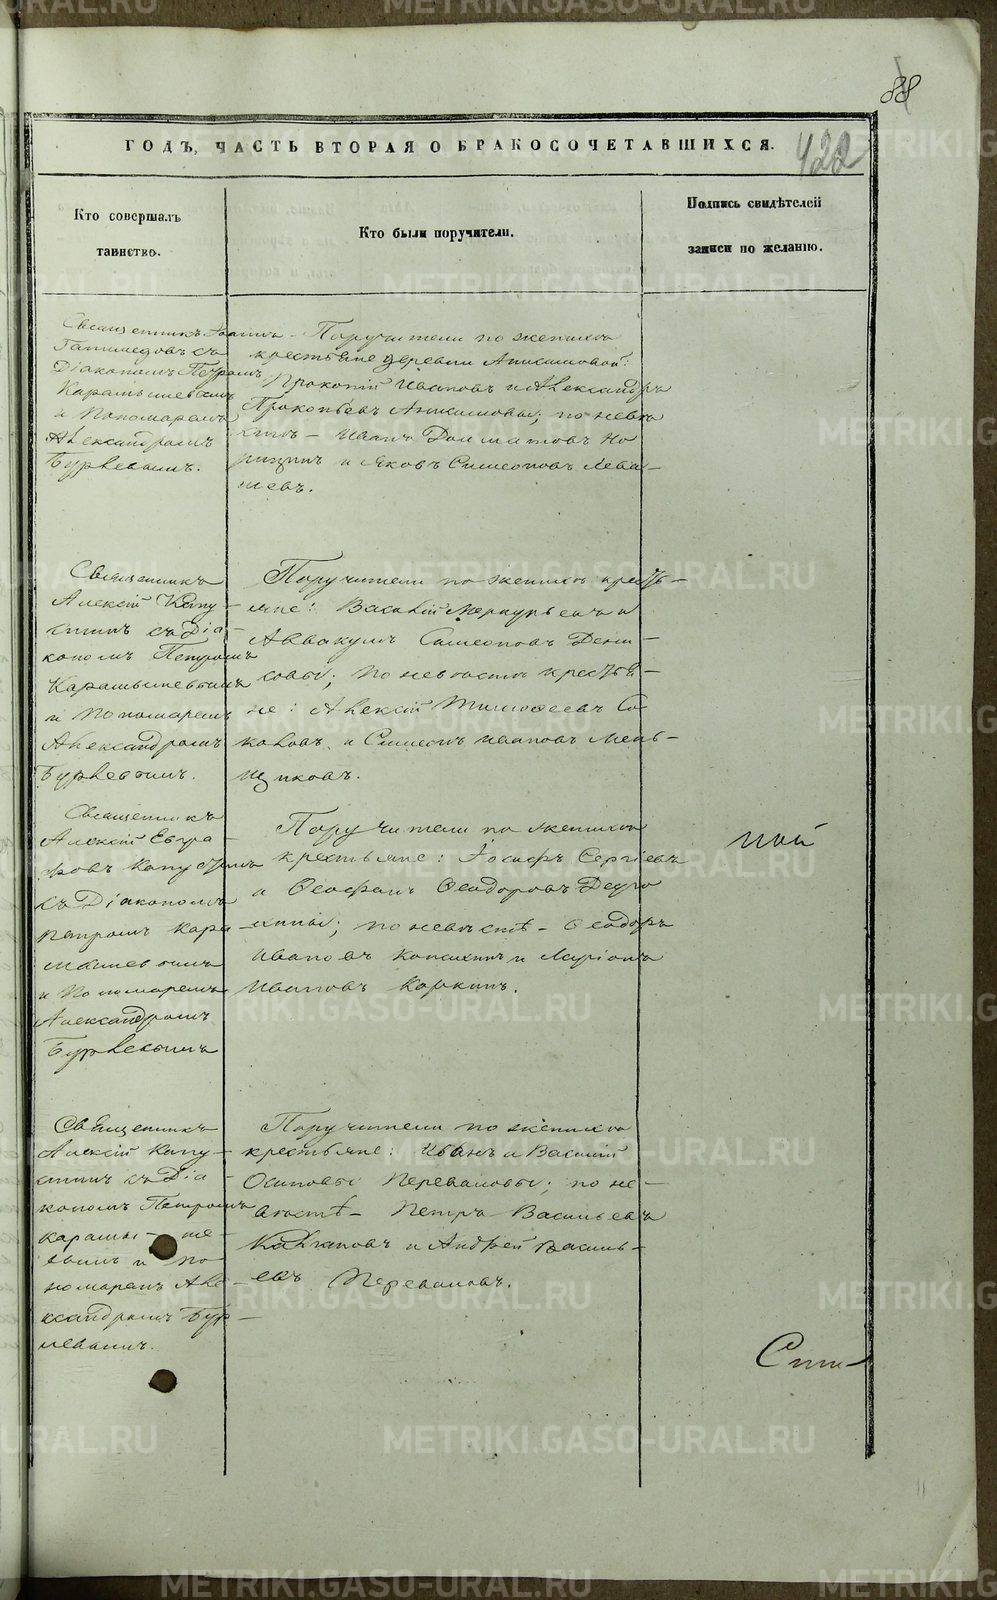 88
422
ГОДЪ, ЧАСТЬ ВТОРАЯ О БРАКОСОЧЕТАВШИХСЯ.
Кто совершалъ
таинство.
Кто были поручители.
Подпись свидѣтелей
записи по желанію.
Священникъ Іоаннъ
съ
Діакономъ Петромъ
Карамышевымъ
и Пономаремъ
Александромъ
Бурлевымъ.
Поручители по женихѣ
крестьяне деревни Анисимовой:
Прокопій Ивановъ и Александръ
Прокопьевъ Анисимовы; по невѣ
стѣ - Иванъ
и Яковъ Симеоновъ Лева-
шевъ.
Священникъ
Алексій Капу-
стинъ съ Діа-
кономъ Петромъ
Карамышевымъ
и Пономаремъ
Александромъ
Бурлевымъ.
Поручители по женихѣ кресть-
яне: Василій Меркурьевъ и
Аввакумъ Симеоновъ Дени-
совы; по невѣстѣ крестья-
не: Алексій Тимофеевъ Со
коловъ и Симеонъ Ивановъ Мень-
щиковъ.
Священникъ
Алексій Евгра-
фовъ Капустинъ
съ Діакономъ
Петромъ Кара
мышевымъ
и Пономаремъ
Александромъ
Бурлевымъ
Поручители по женихѣ
крестьяне: Іосифъ Сергіевъ
и Ѳеофанъ Ѳеодоровъ
по невѣстѣ - Ѳеодоръ
Ивановъ и
Ивановъ Коркинъ.
ной
Священникъ
Алексій Капу-
стинъ съ Діа-
кономъ Петромъ
Карамы-ше-
вымъ и По-
номаремъ Але-
ксандромъ Бур-
левымъ.
Поручители по женихѣ
крестьяне: Иванъ и Василій
Осиповы Переваловы; по не-
вѣстѣ - Петръ Васильевъ
и Андрей Василь-
евъ Переваловъ.
METRIKI.GASO-URAL.RU